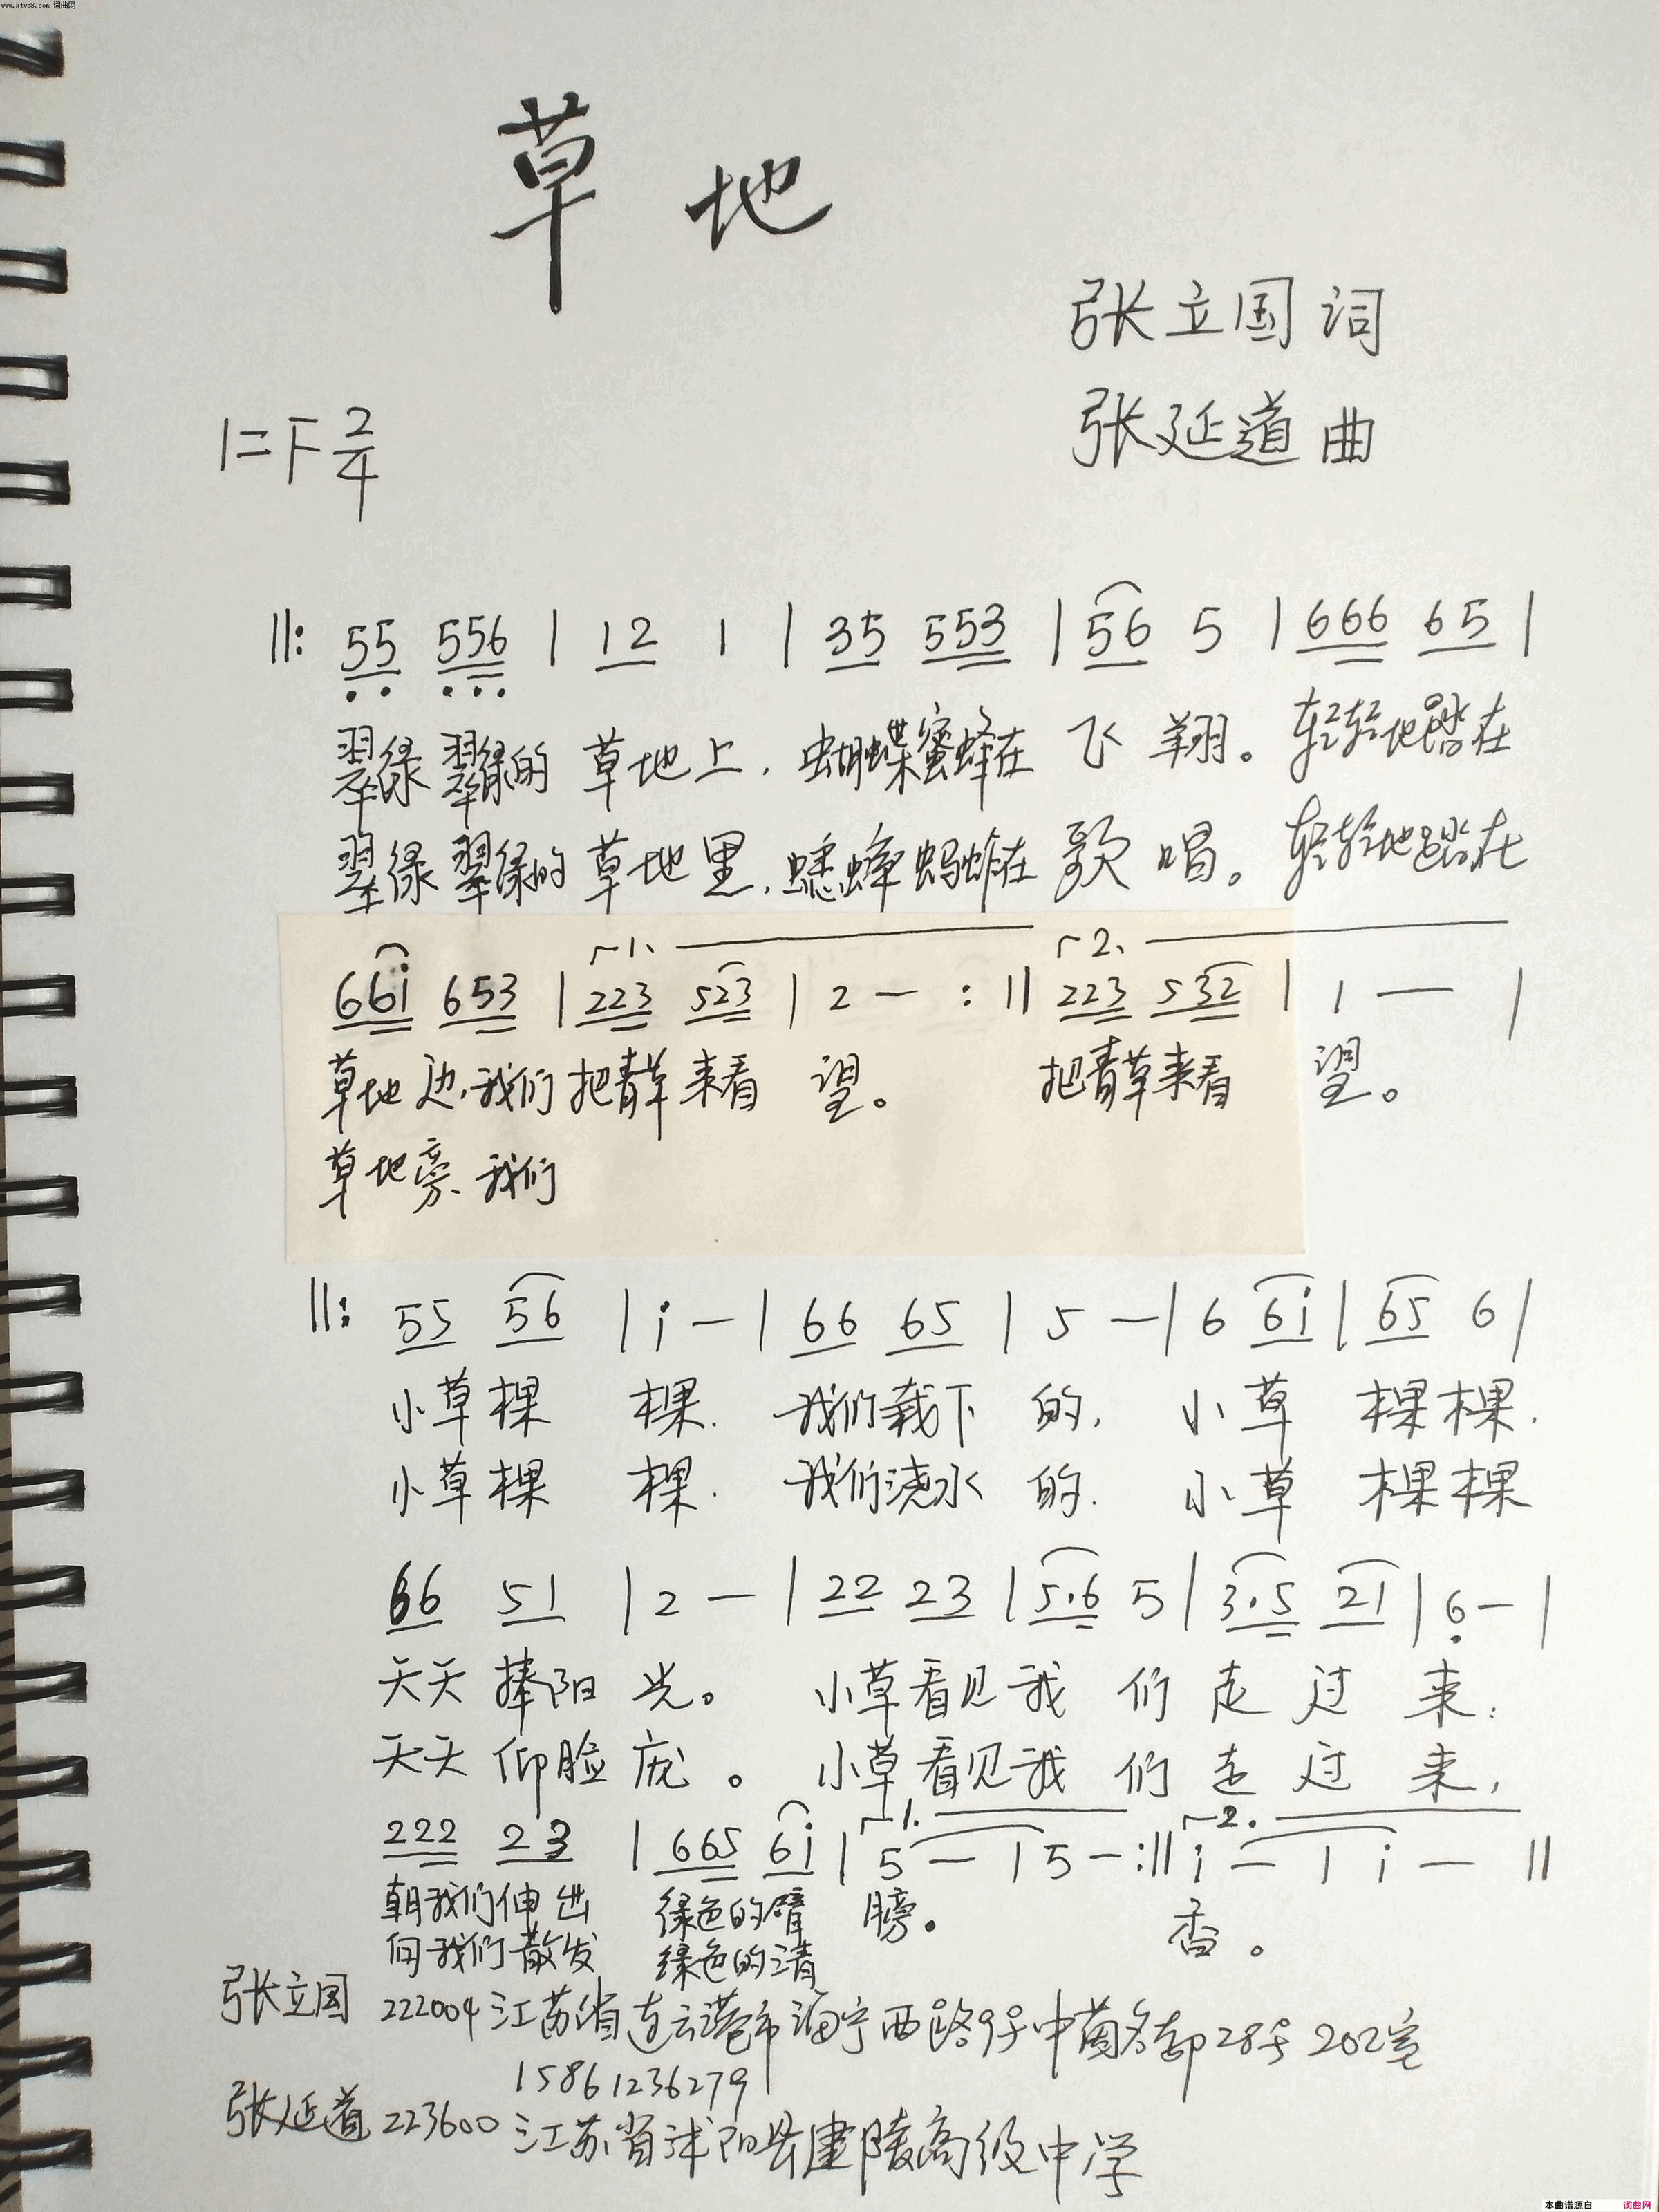 www.ktvc8.com 词曲网
草地
张立国 词
张延道 曲
1=F 2/4
||: 55 556 | 12 1 | 35 553 | 56 5 | 666 65 |
翠绿 翠绿的 草地上, 蝴蝶蜜蜂在 飞 翔。 轻轻地踏在
翠绿 翠绿的 草地里, 蟋蟀蚂蚱在 歌 唱。 轻轻地踏在
1. 2.
66i 653 | 223 523 | 2 — :|| 223 532 | 1 — |
草地边,我们把青草 来看 望。 把青草来看 望。
草地旁、我们
||: 55 56 | i — | 66 65 | 5 — | 6 6i | 65 6 |
小草棵 棵. 我们栽下 的, 小 草 棵棵.
小草棵 棵. 我们浇水 的. 小 草 棵棵
66 51 | 2 — | 22 23 | 5.6 5 | 3.5 21 | 6 — |
天天 捧阳 光。 小草看见 我 们 走 过 来:
天天 仰脸 庞。 小草看见我 们 走 过 来,
1. 2.
222 23 | 665 6i | 5 — | 5 — :|| i — | i — ||
朝我们伸出 绿色的臂 膀。 香。
向我们散发 绿色的清
张立国 222004 江苏省连云港市海宁西路9号中茵名都28号202室
15861236279
张延道 223600 江苏省沭阳县建陵高级中学
本曲谱源自 词曲网